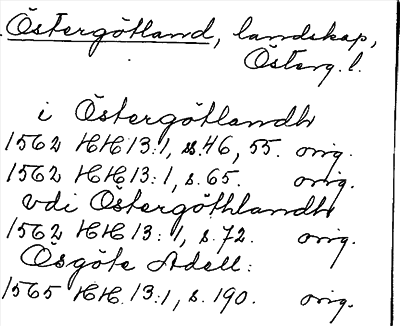 Östergötland, landskap,
Österg. l.
i Östergötlandh
1562 HH 13:1, s. 46, 55. orig.
1562 HH 13:1, s. 65. orig.
vdi Östergöthlandh
1562 HH 13:1, s. 72. orig.
Ösgöte Adell:
1565 HH. 13:1, s. 190. orig.